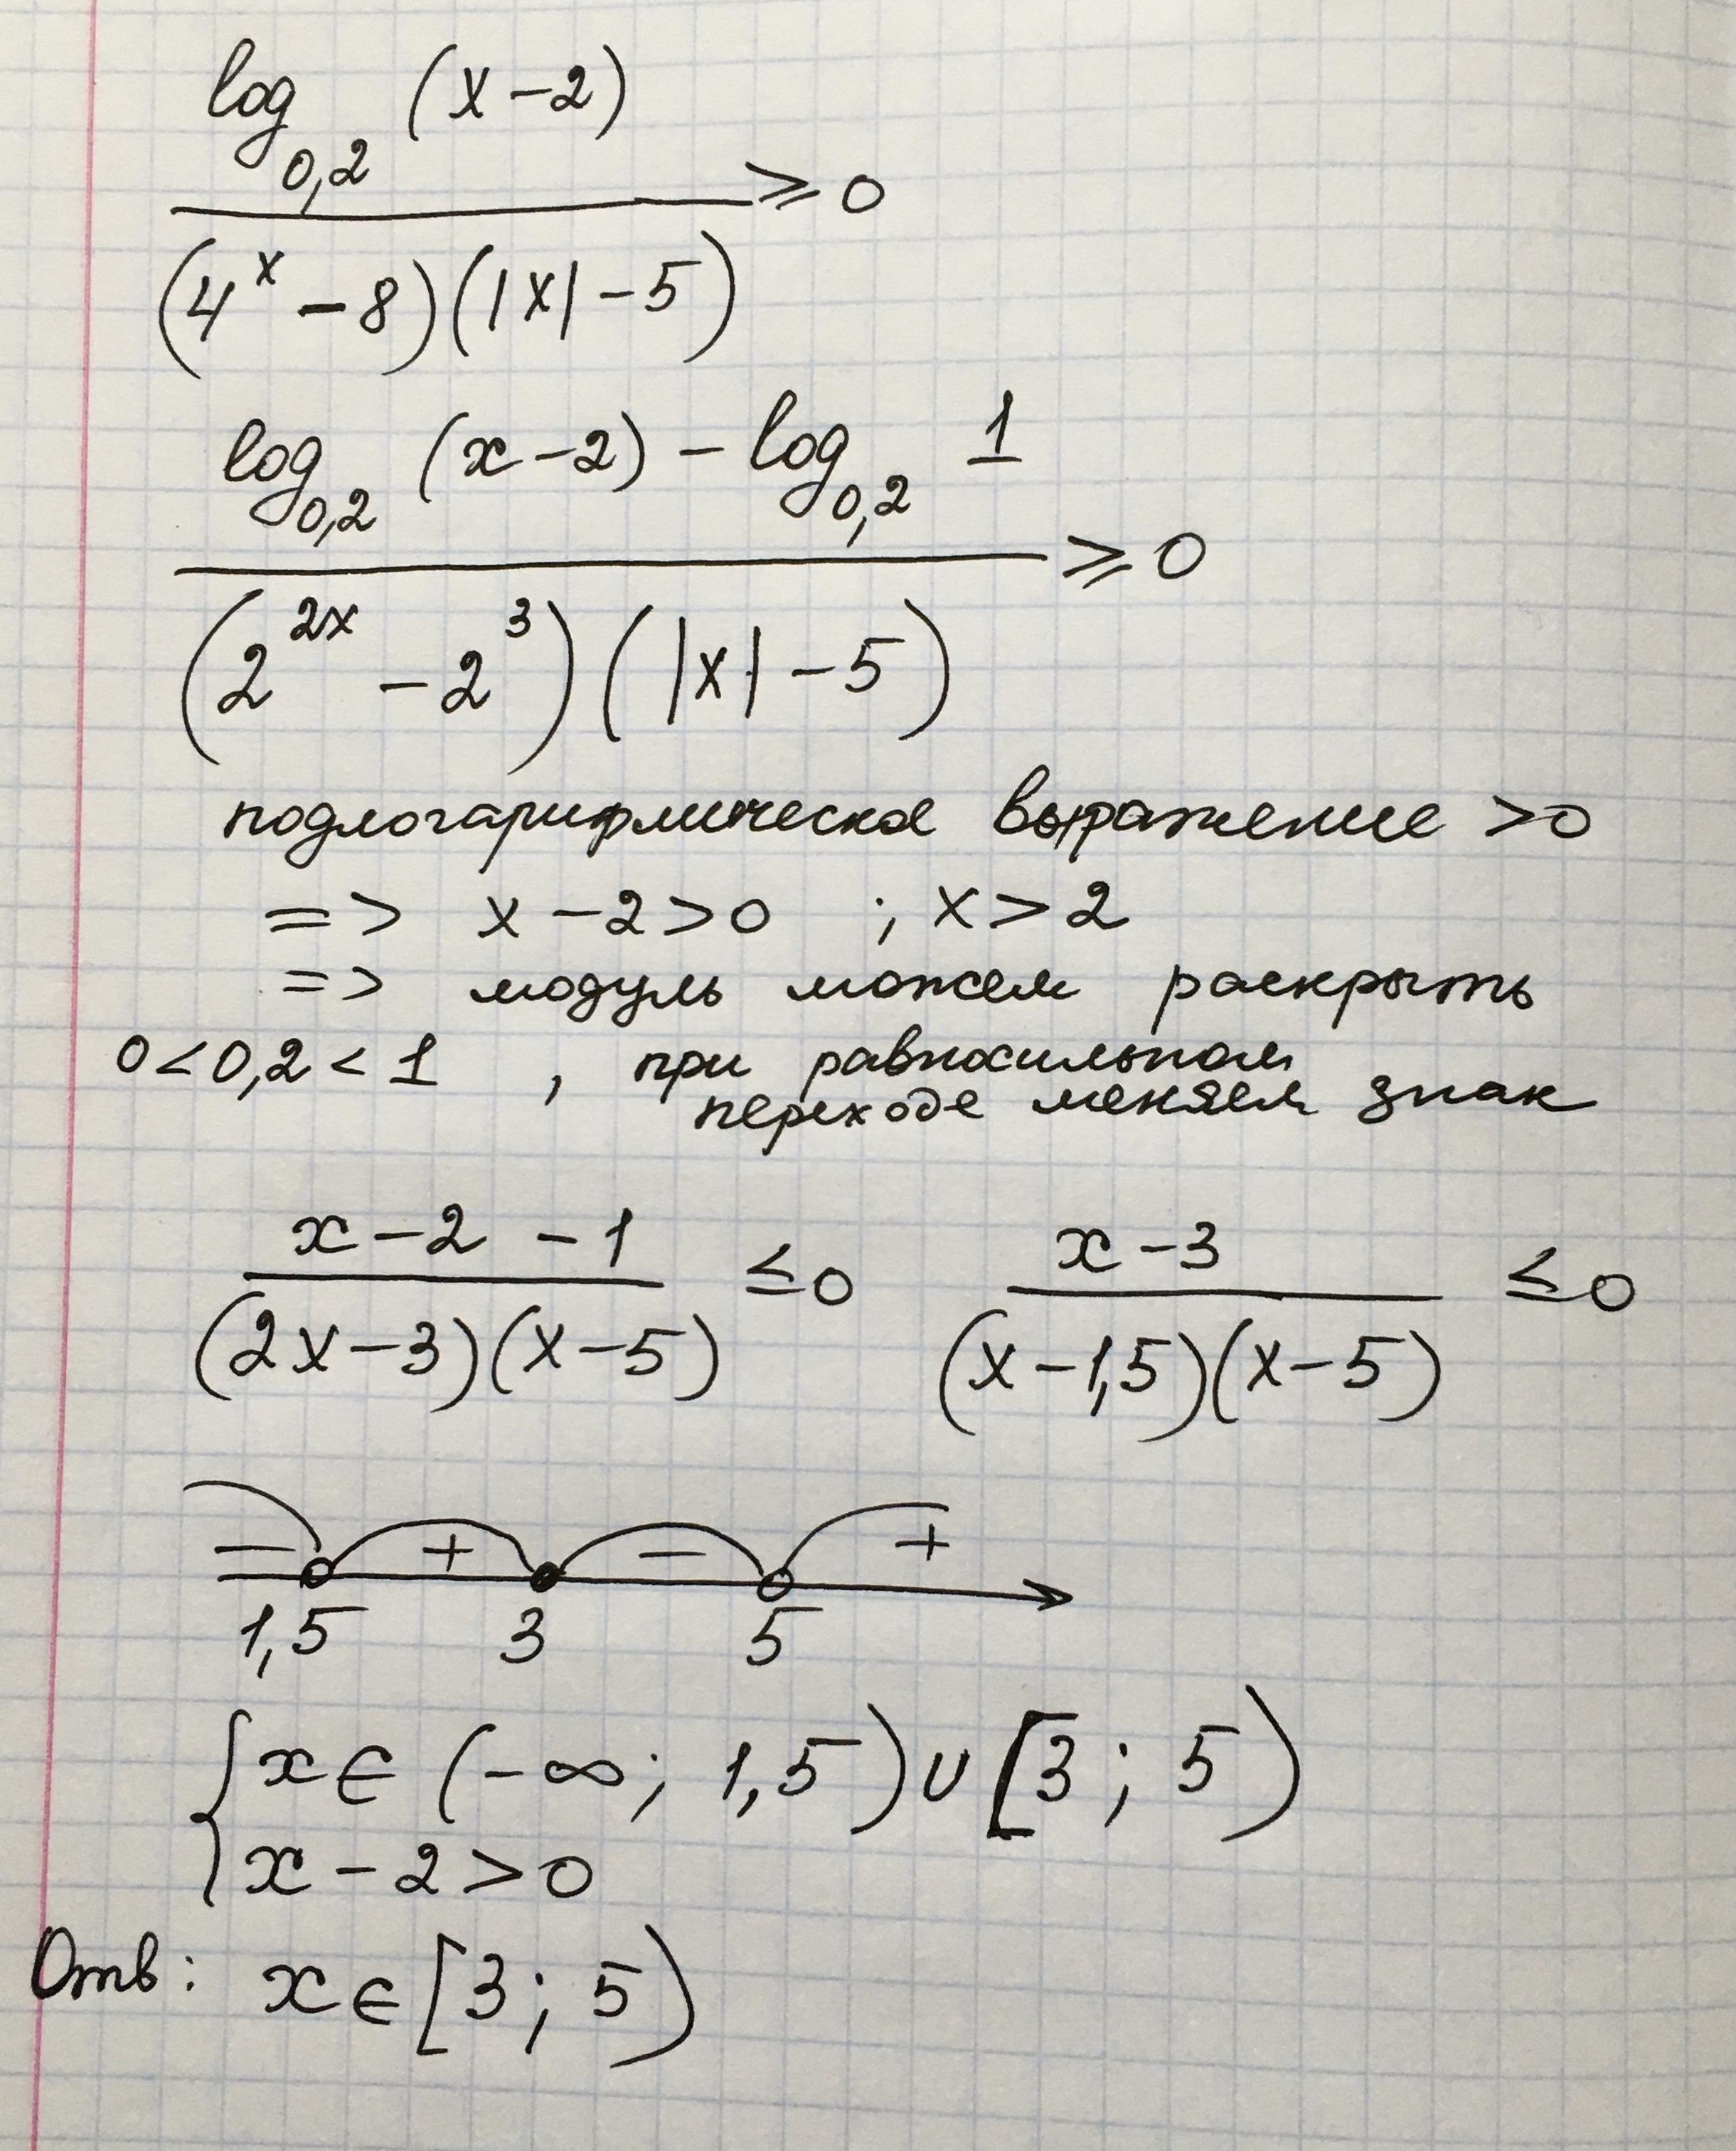 log₀,₂ (x-2)
≥ 0
(4ˣ - 8)(|x| - 5)
log₀,₂ (x-2) - log₀,₂ 1
≥ 0
(2²ˣ - 2³)(|x| - 5)
подлогарифмическое выражение >0
=> x - 2 > 0 ; x > 2
=> модуль можем раскрыть
0 < 0,2 < 1 , при равносильном
переходе меняем знак
x - 2 - 1 x - 3
≤ 0 ≤ 0
(2x - 3)(x - 5) (x - 1,5)(x - 5)
- + - +
1,5 3 5
{ x ∈ (-∞; 1,5) ∪ [3; 5)
x - 2 > 0
Отв: x ∈ [3; 5)